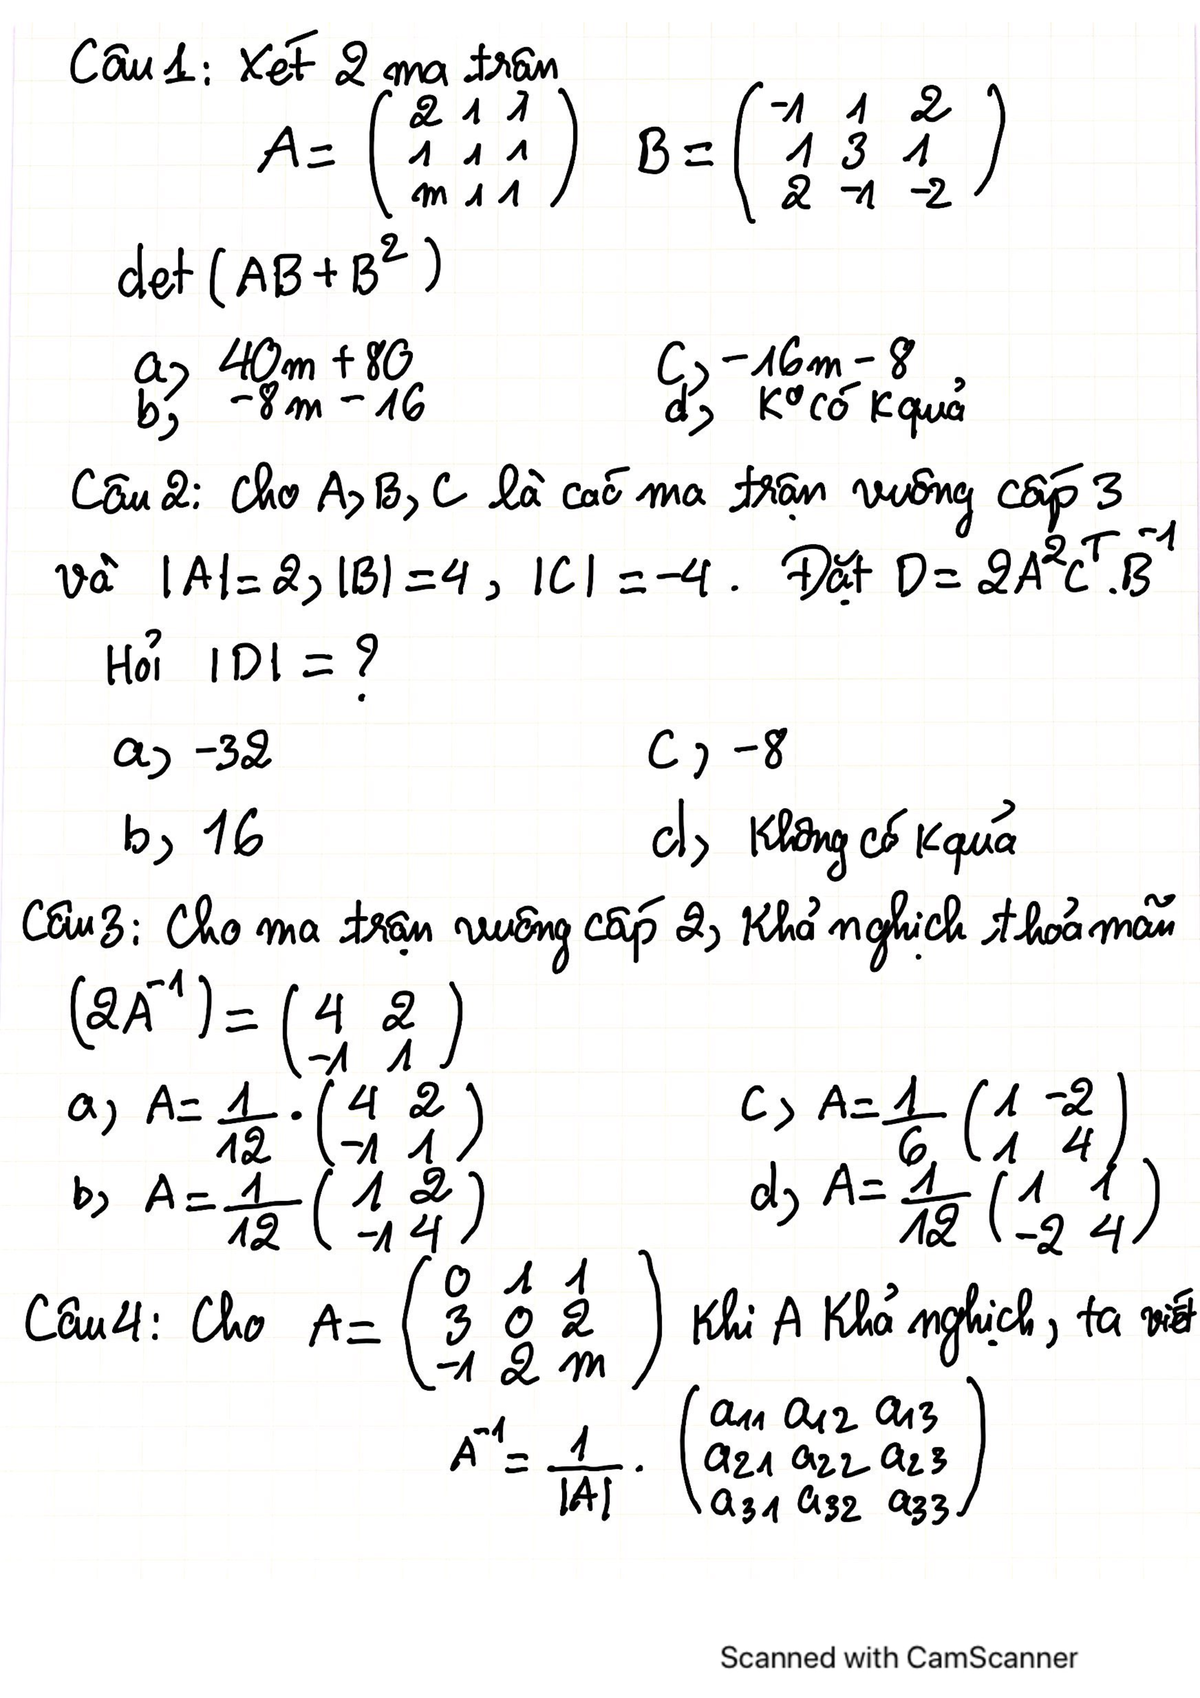 Câu 1: Xét 2 ma trân
A = ( 2 1 1 ) B = ( -1 1 2 )
1 1 1 1 3 1
m 1 1 2 -1 -2
det (AB + B²)
a, 40m + 80 C, -16m - 8
b, -8m - 16 d, K° có K quả
Câu 2: Cho A, B, C là các ma trận vuông cấp 3
và |A| = 2, |B| = 4, |C| = -4. Đặt D = 2A²Cᵀ.B⁻¹
Hỏi |D| = ?
a, -32 C, -8
b, 16 d, Không có K quả
Câu 3: Cho ma trận vuông cấp 2, Khả nghịch thoả mãn
(2A⁻¹) = ( 4 2 )
-1 1
a, A = 1/12 · ( 4 2 ) C, A = 1/6 ( 1 -2 )
-1 1 1 4
b, A = 1/12 ( 1 2 ) d, A = 1/12 ( 1 1 )
-1 4 -2 4
Câu 4: Cho A = ( 0 1 1 ) Khi A Khả nghịch, ta viết
3 0 2
-1 2 m
A⁻¹ = 1/|A| · ( a11 a12 a13 )
a21 a22 a23
a31 a32 a33
Scanned with CamScanner